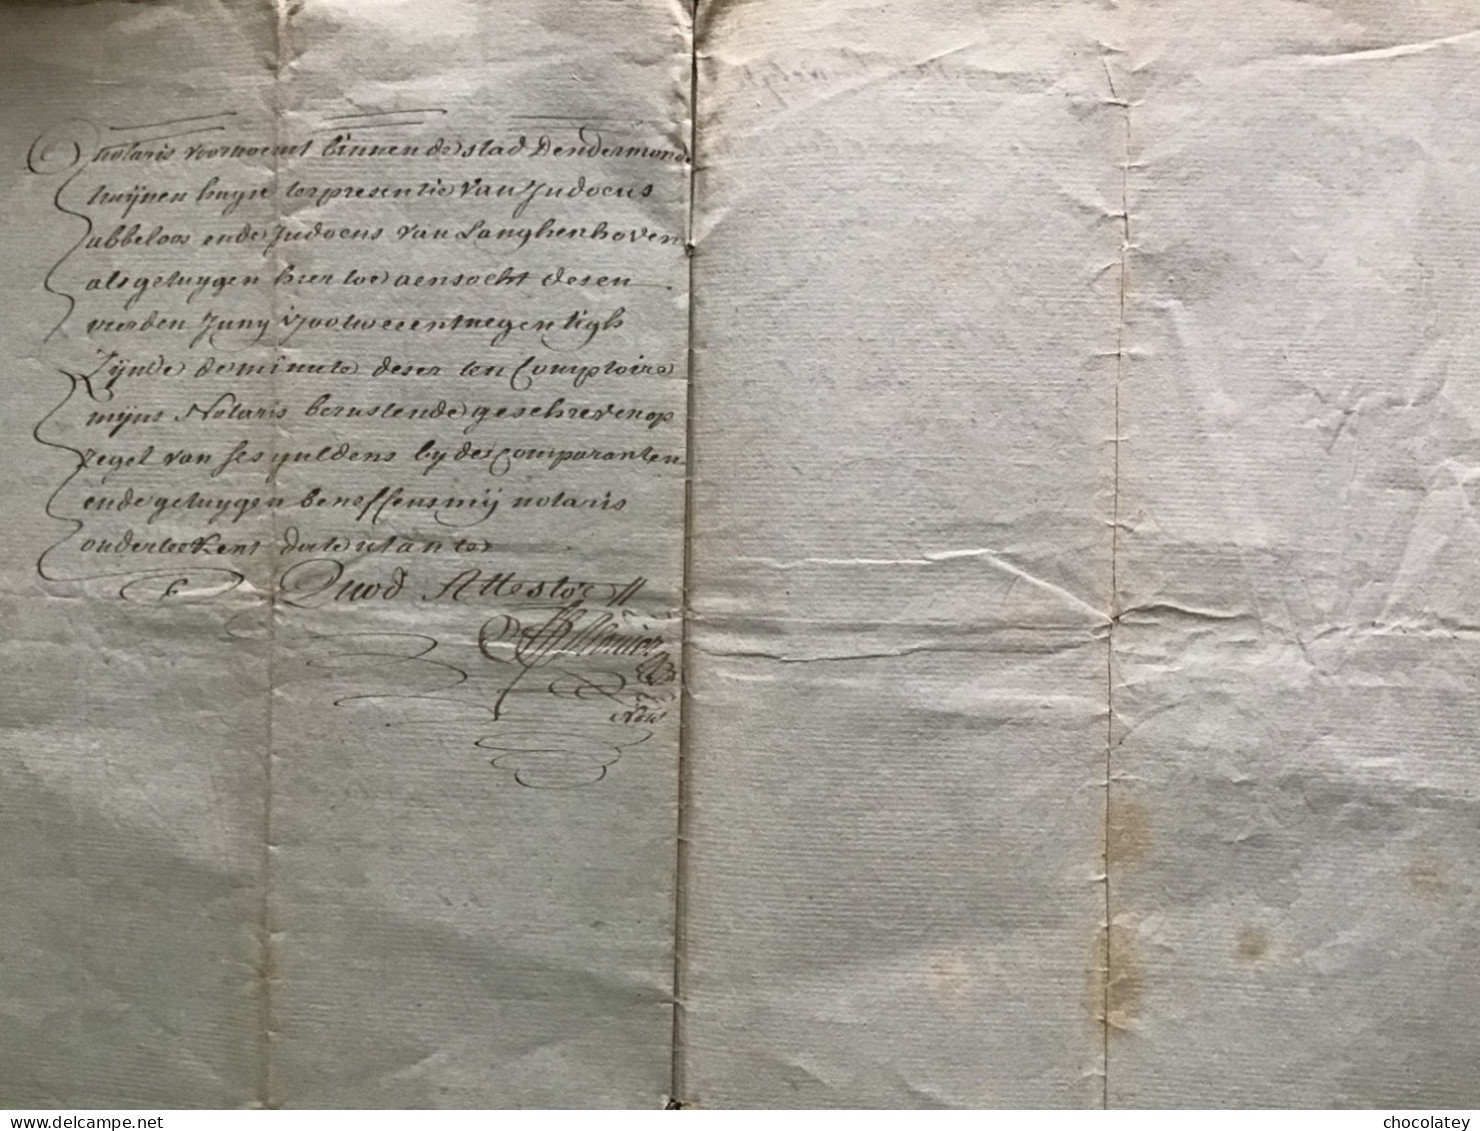 notaris voornoemt binnen de stad Dendermonde
t'mijnen huyse ter presentie van Judocus
abbeloos ende Judocus van Langhenhoven
als getuygen hier toe aensocht desen
vierden Juny 1700 tweeentnegentigh
Zijnde de minute deser ten Comptoire
mijns Notaris berustende geschreven op
zegel van ses guldens by de Comparanten
ende getuygen beneffens mij notaris
onderteekent date ut ante
Quod Attestor
delcampe.net
chocolatey